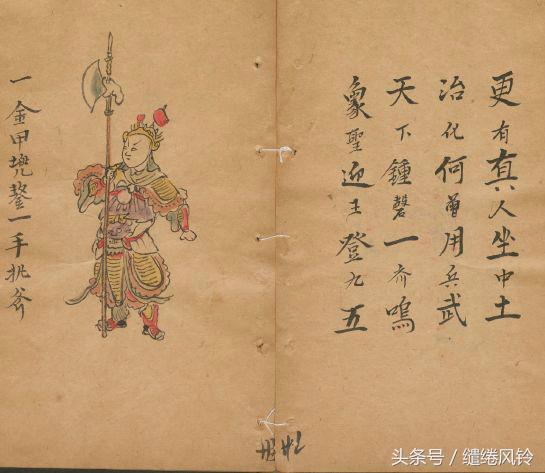 更有真人坐中土
治化何曾用兵武
天下鍾磬一齐鳴
象聖迎王登九五
一金甲兜鍪一手执斧
头条号／缱绻风铃